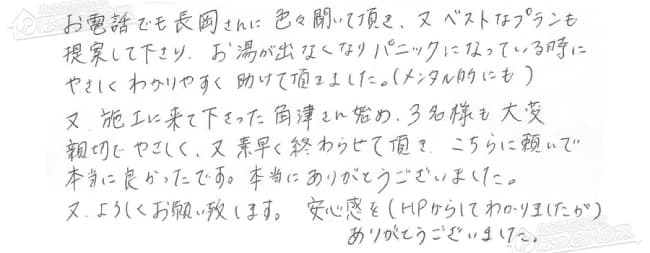 お電話でも長岡さんに色々聞いて頂き、又ベストなプランも
提案して下さり、お湯が出なくなりパニックになっている時に
やさしくわかりやすく助けて頂きました。(メンタル的にも)
又、施工に来て下さった角津さん始め、3名様も大変
親切でやさしく、又素早く終わらせて頂き、こちらに頼いで
本当に良かったです。本当にありがとうございました。
又、よろしくお願い致します。 安心感を(HPからしてわかりましたが)
ありがとうございました。